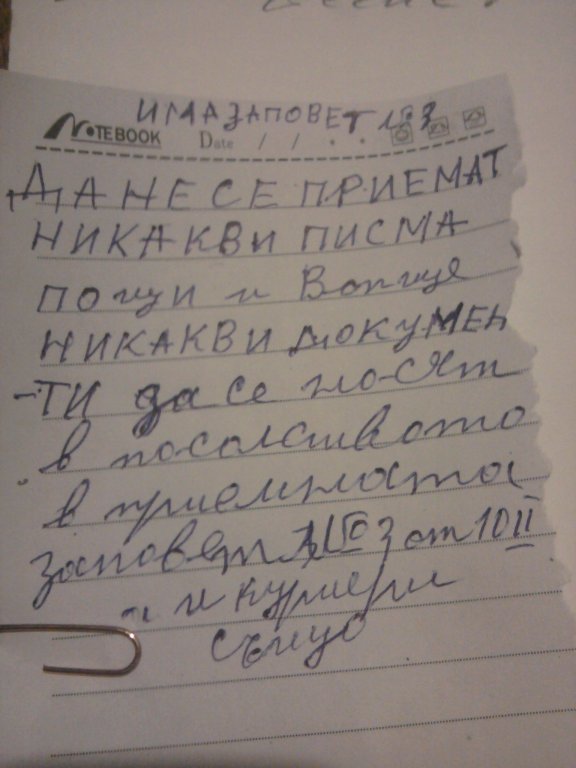 ИМА ЗАПОВЕТ
NOTEBOOK Date / /
ДА НЕ СЕ ПРИЕМАТ
НИКАКВИ ПИСМА
ПОЩИ и Вопще
НИКАКВИ ДОКУМЕН
-ТИ да се носят
в посолството
в приемната
заповет от 10 II
и куриери
също